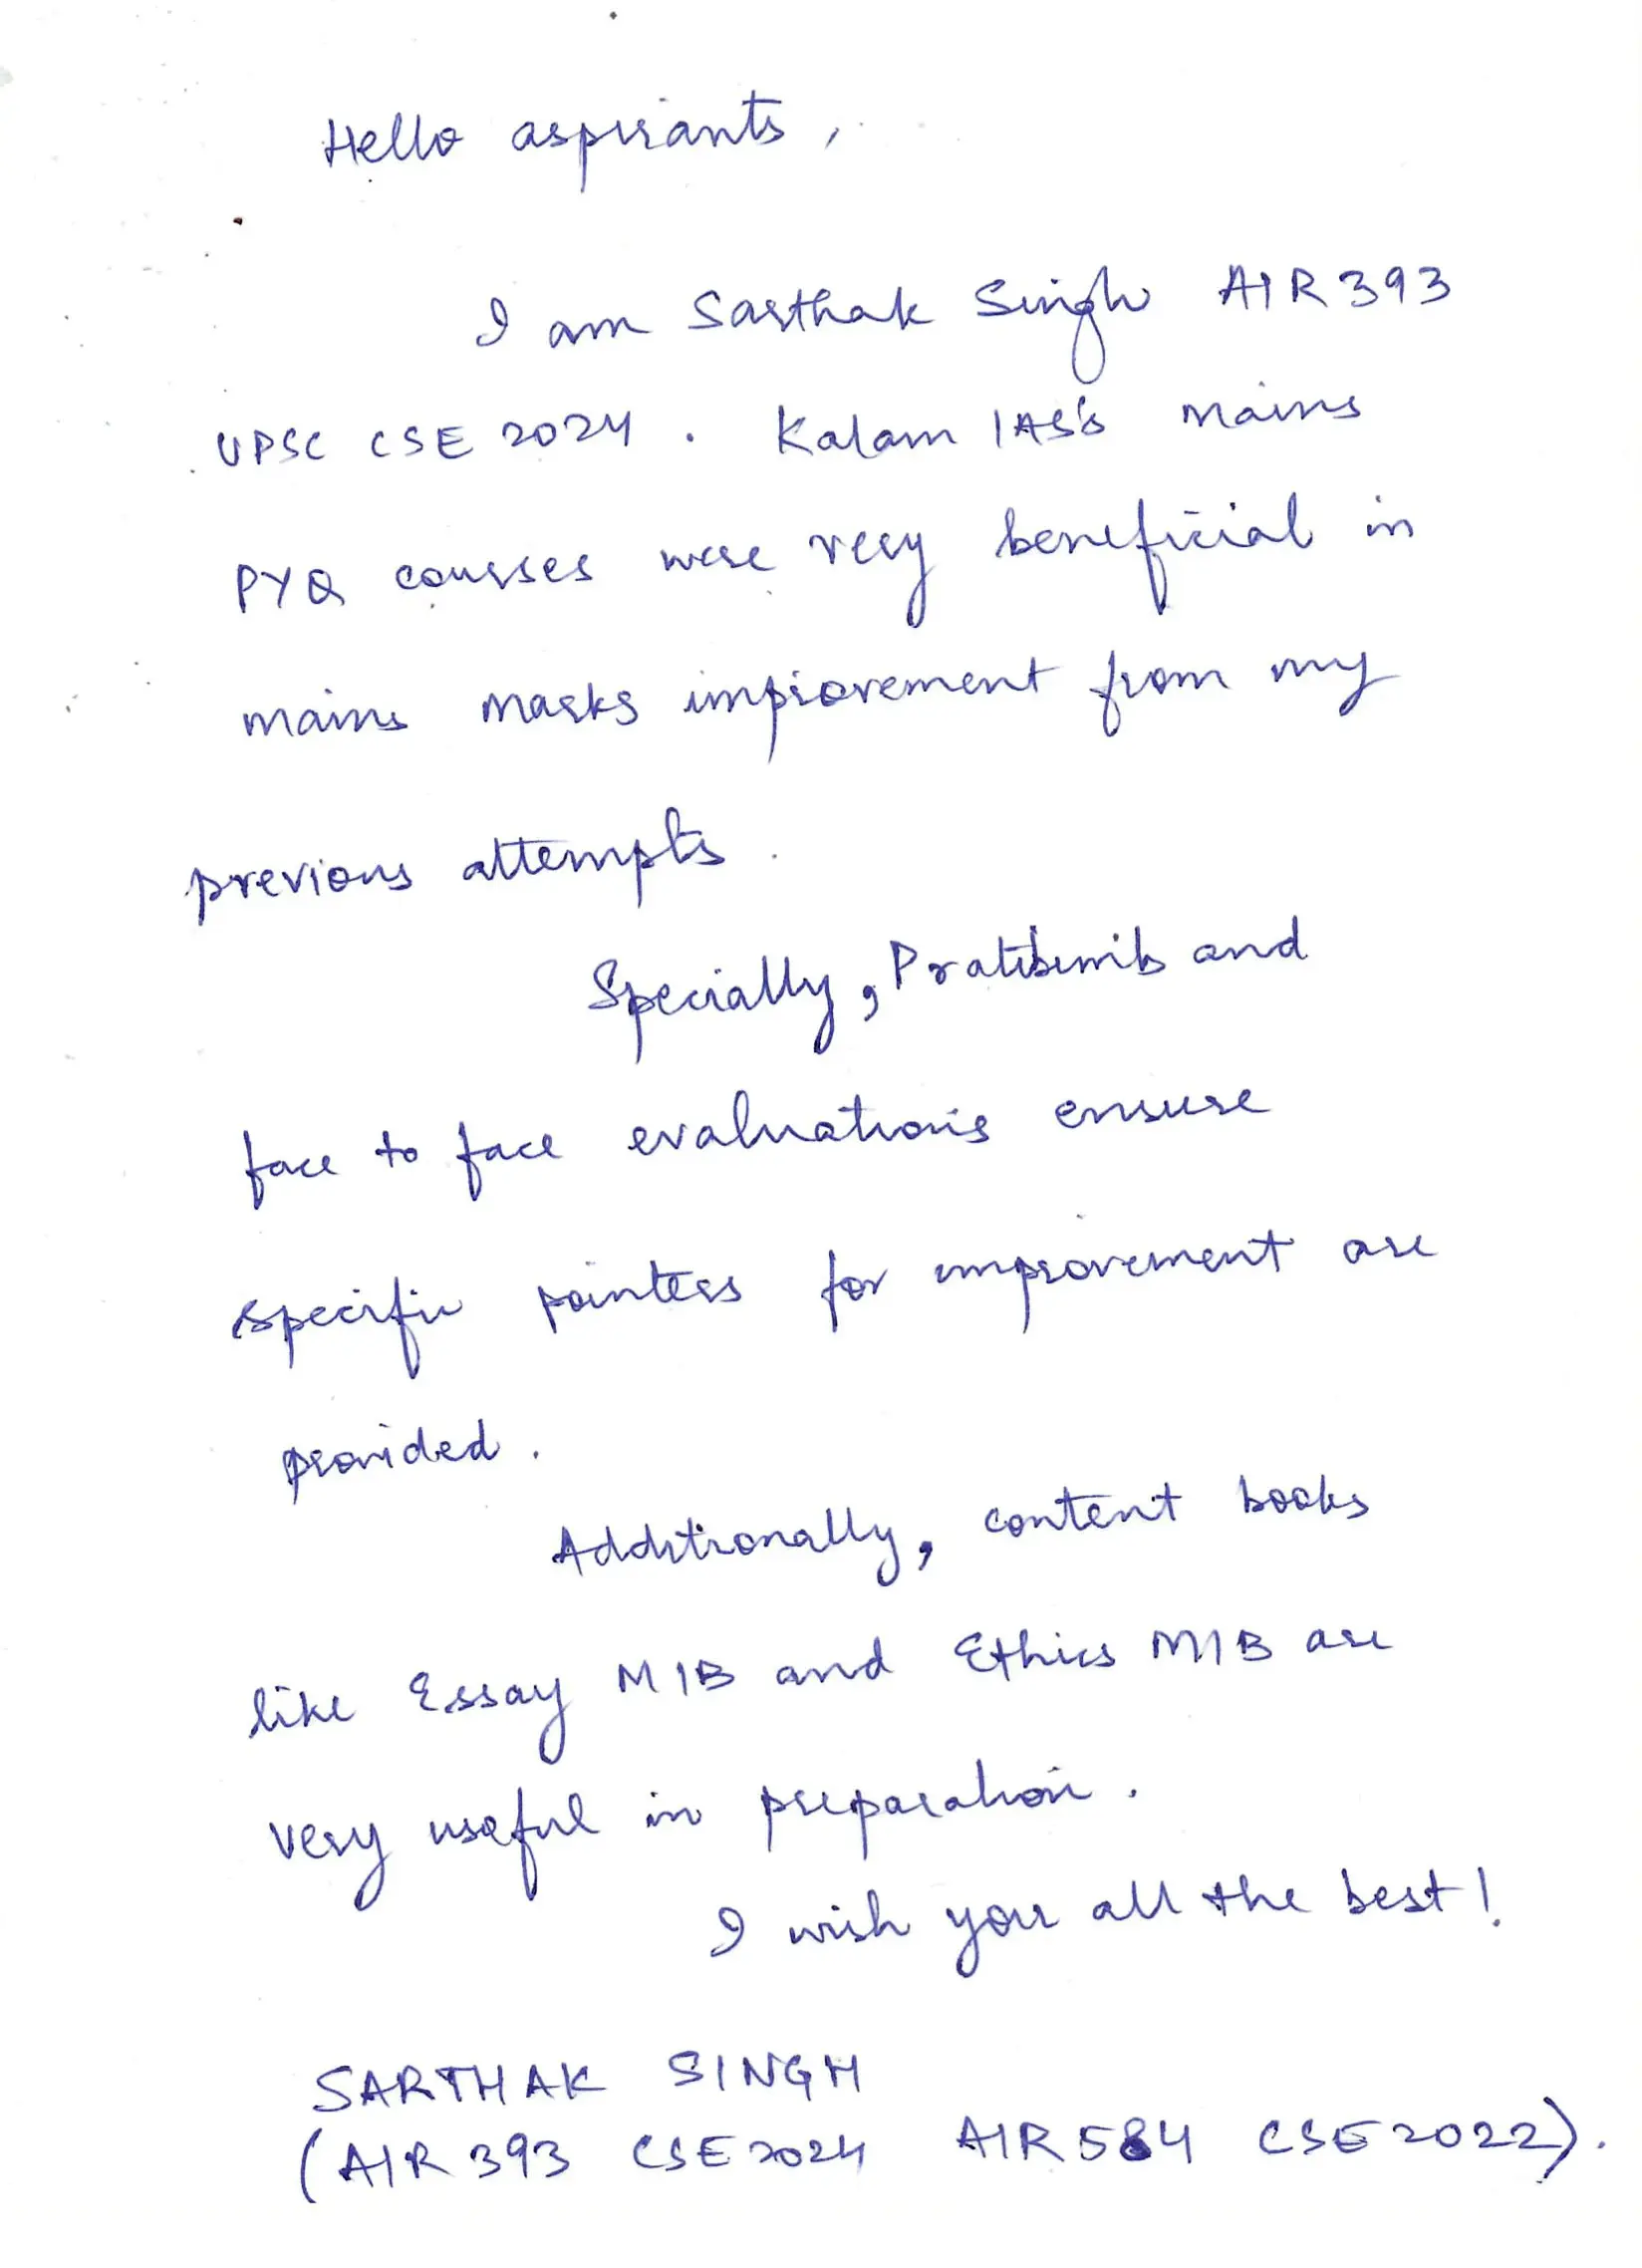 Hello aspirants,
I am Sarthak Singh AIR 393
UPSC CSE 2024. Kalam IAS's Mains
PYQ courses were very beneficial in
mains marks improvement from my
previous attempts.
Specially, Pratibimb and
face to face evaluations ensure
specific pointers for improvement are
provided.
Additionally, content books
like Essay MIB and Ethics MIB are
very useful in preparation.
I wish you all the best!
SARTHAK SINGH
(AIR 393 CSE 2024 AIR 584 CSE 2022).